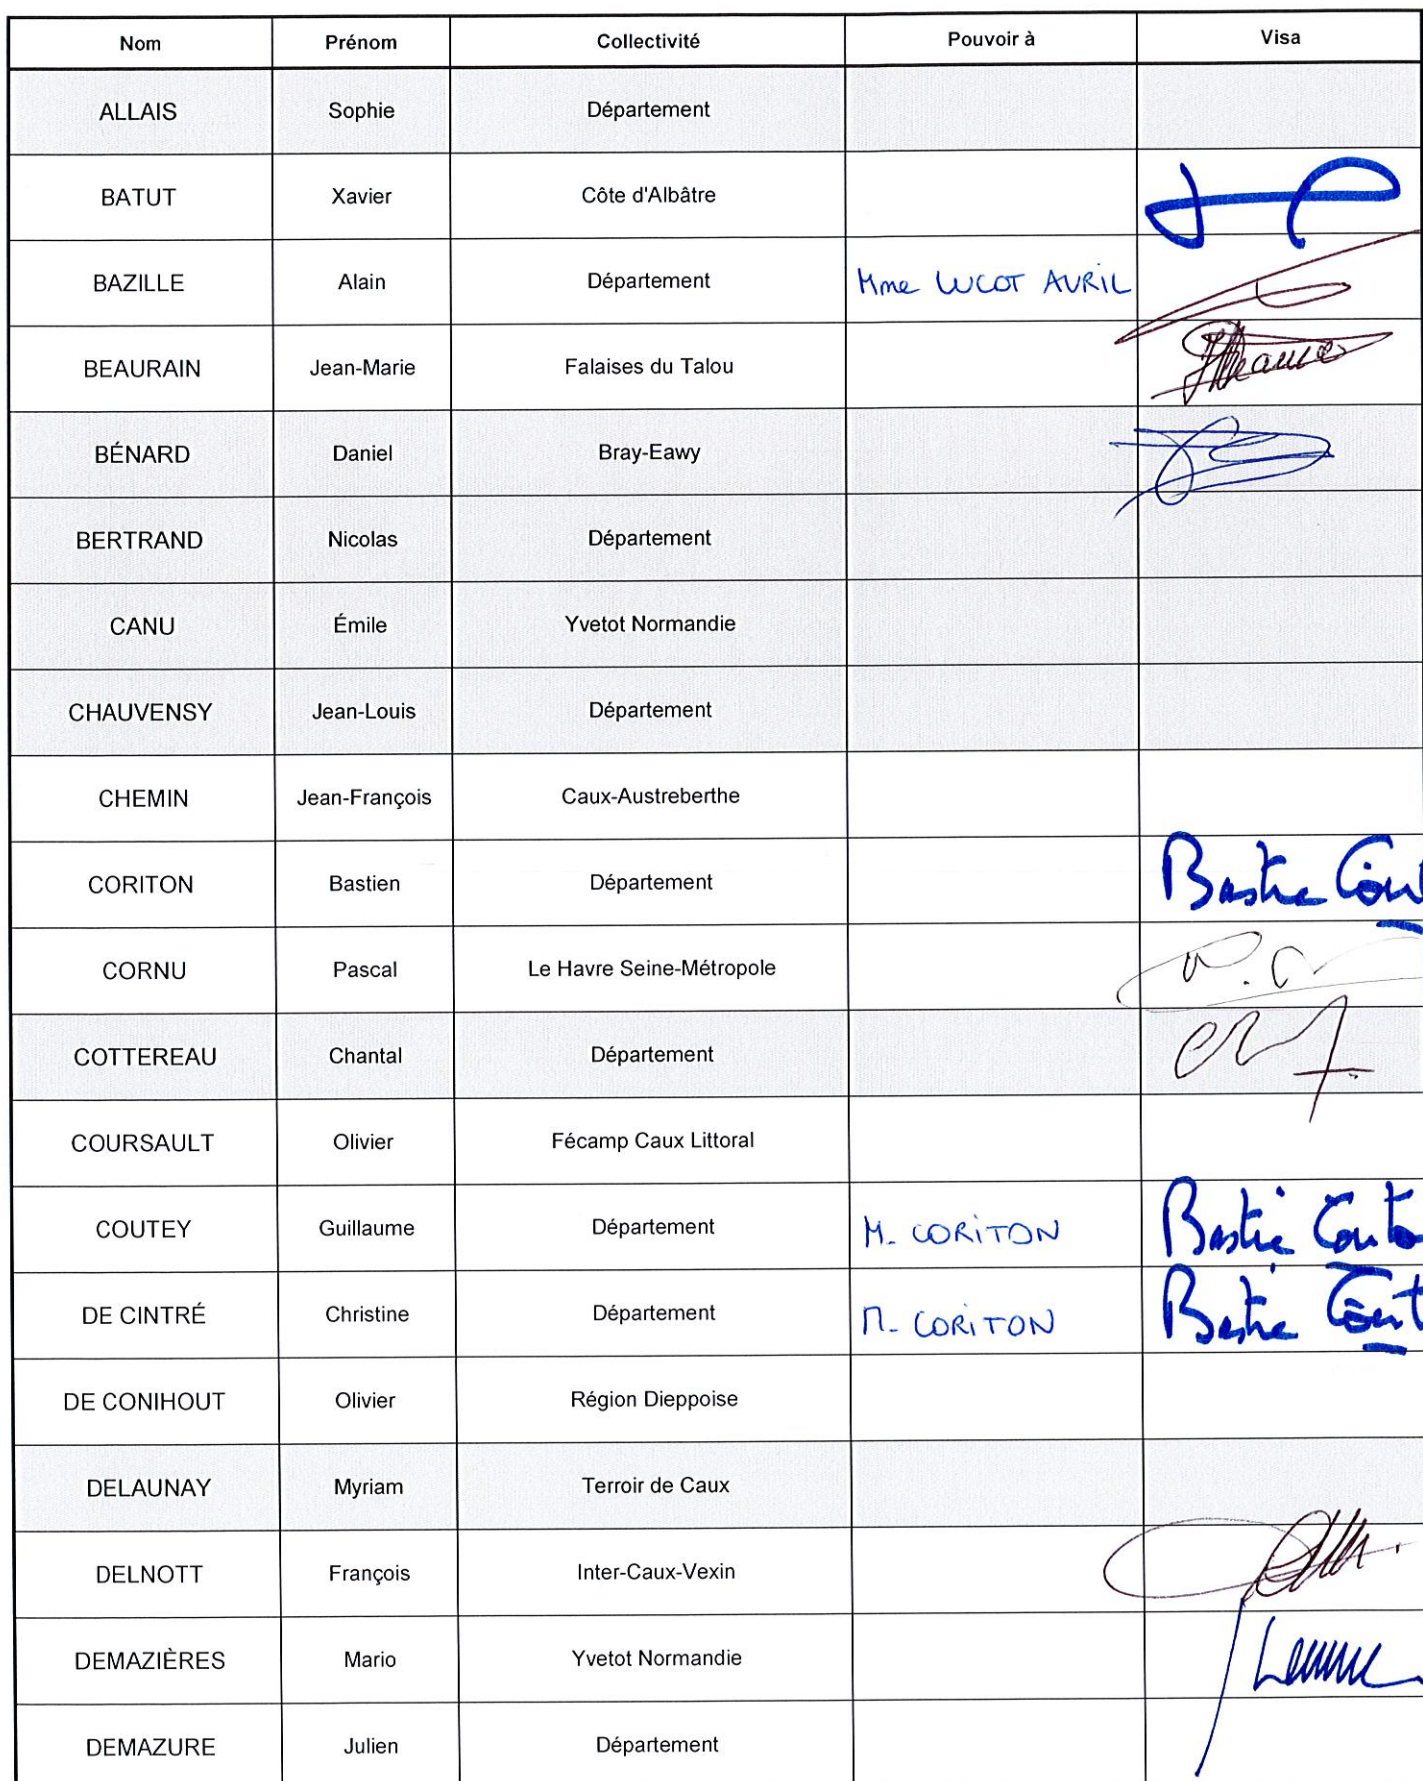 Nom Prénom Collectivité Pouvoir à Visa
ALLAIS Sophie Département
BATUT Xavier Côte d'Albâtre
BAZILLE Alain Département Mme LUCOT AVRIL
BEAURAIN Jean-Marie Falaises du Talou
BÉNARD Daniel Bray-Eawy
BERTRAND Nicolas Département
CANU Émile Yvetot Normandie
CHAUVENSY Jean-Louis Département
CHEMIN Jean-François Caux-Austreberthe
CORITON Bastien Département
CORNU Pascal Le Havre Seine-Métropole
COTTEREAU Chantal Département
COURSAULT Olivier Fécamp Caux Littoral
COUTEY Guillaume Département M. CORITON
DE CINTRÉ Christine Département M. CORITON
DE CONIHOUT Olivier Région Dieppoise
DELAUNAY Myriam Terroir de Caux
DELNOTT François Inter-Caux-Vexin
DEMAZIÈRES Mario Yvetot Normandie
DEMAZURE Julien Département